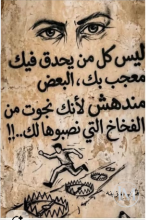 ليس كل من يحدق فيك
معجب بك، البعض
مندهش لأنك نجوت من
الفخاخ التي نصبوها لك..!!